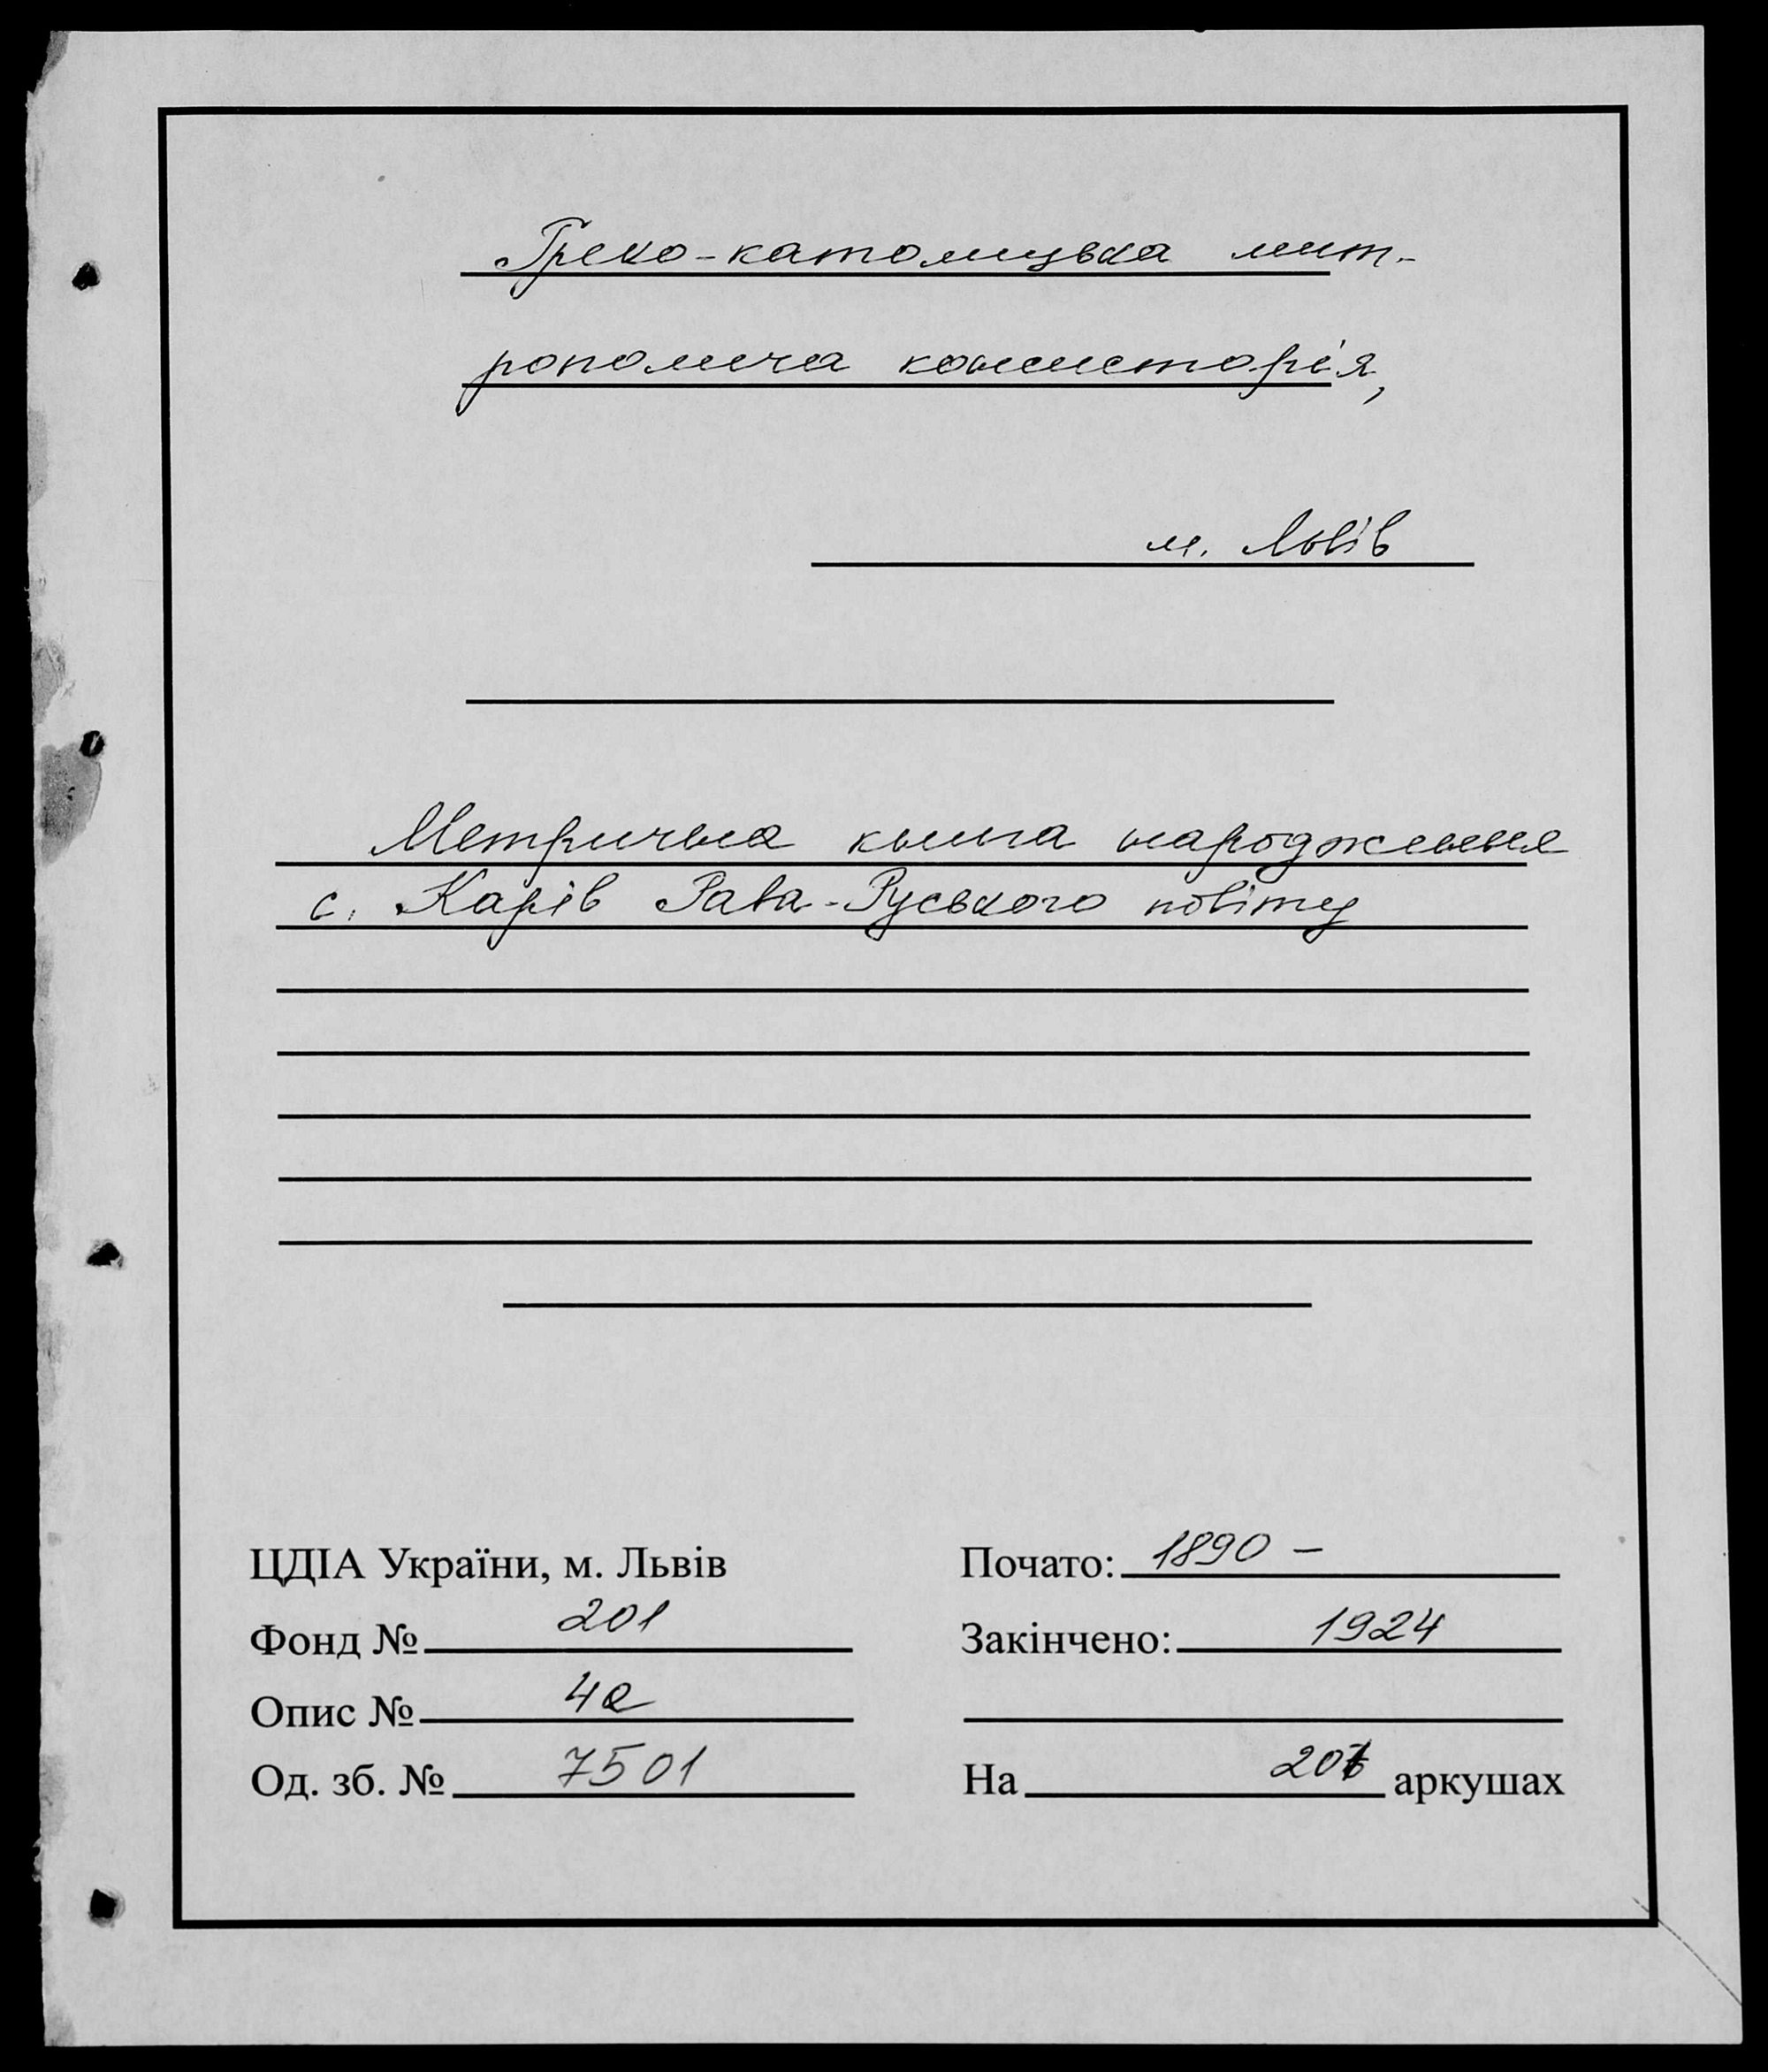 Греко-католицька мит-
рополича консисторія,
м. Львів
Метрична книга народження
с. Карів Рава-Руського повіту
ЦДІА України, м. Львів
Фонд № 201
Опис № 4а
Од. зб. № 7501
Почато: 1890 –
Закінчено: 1924
На аркушах